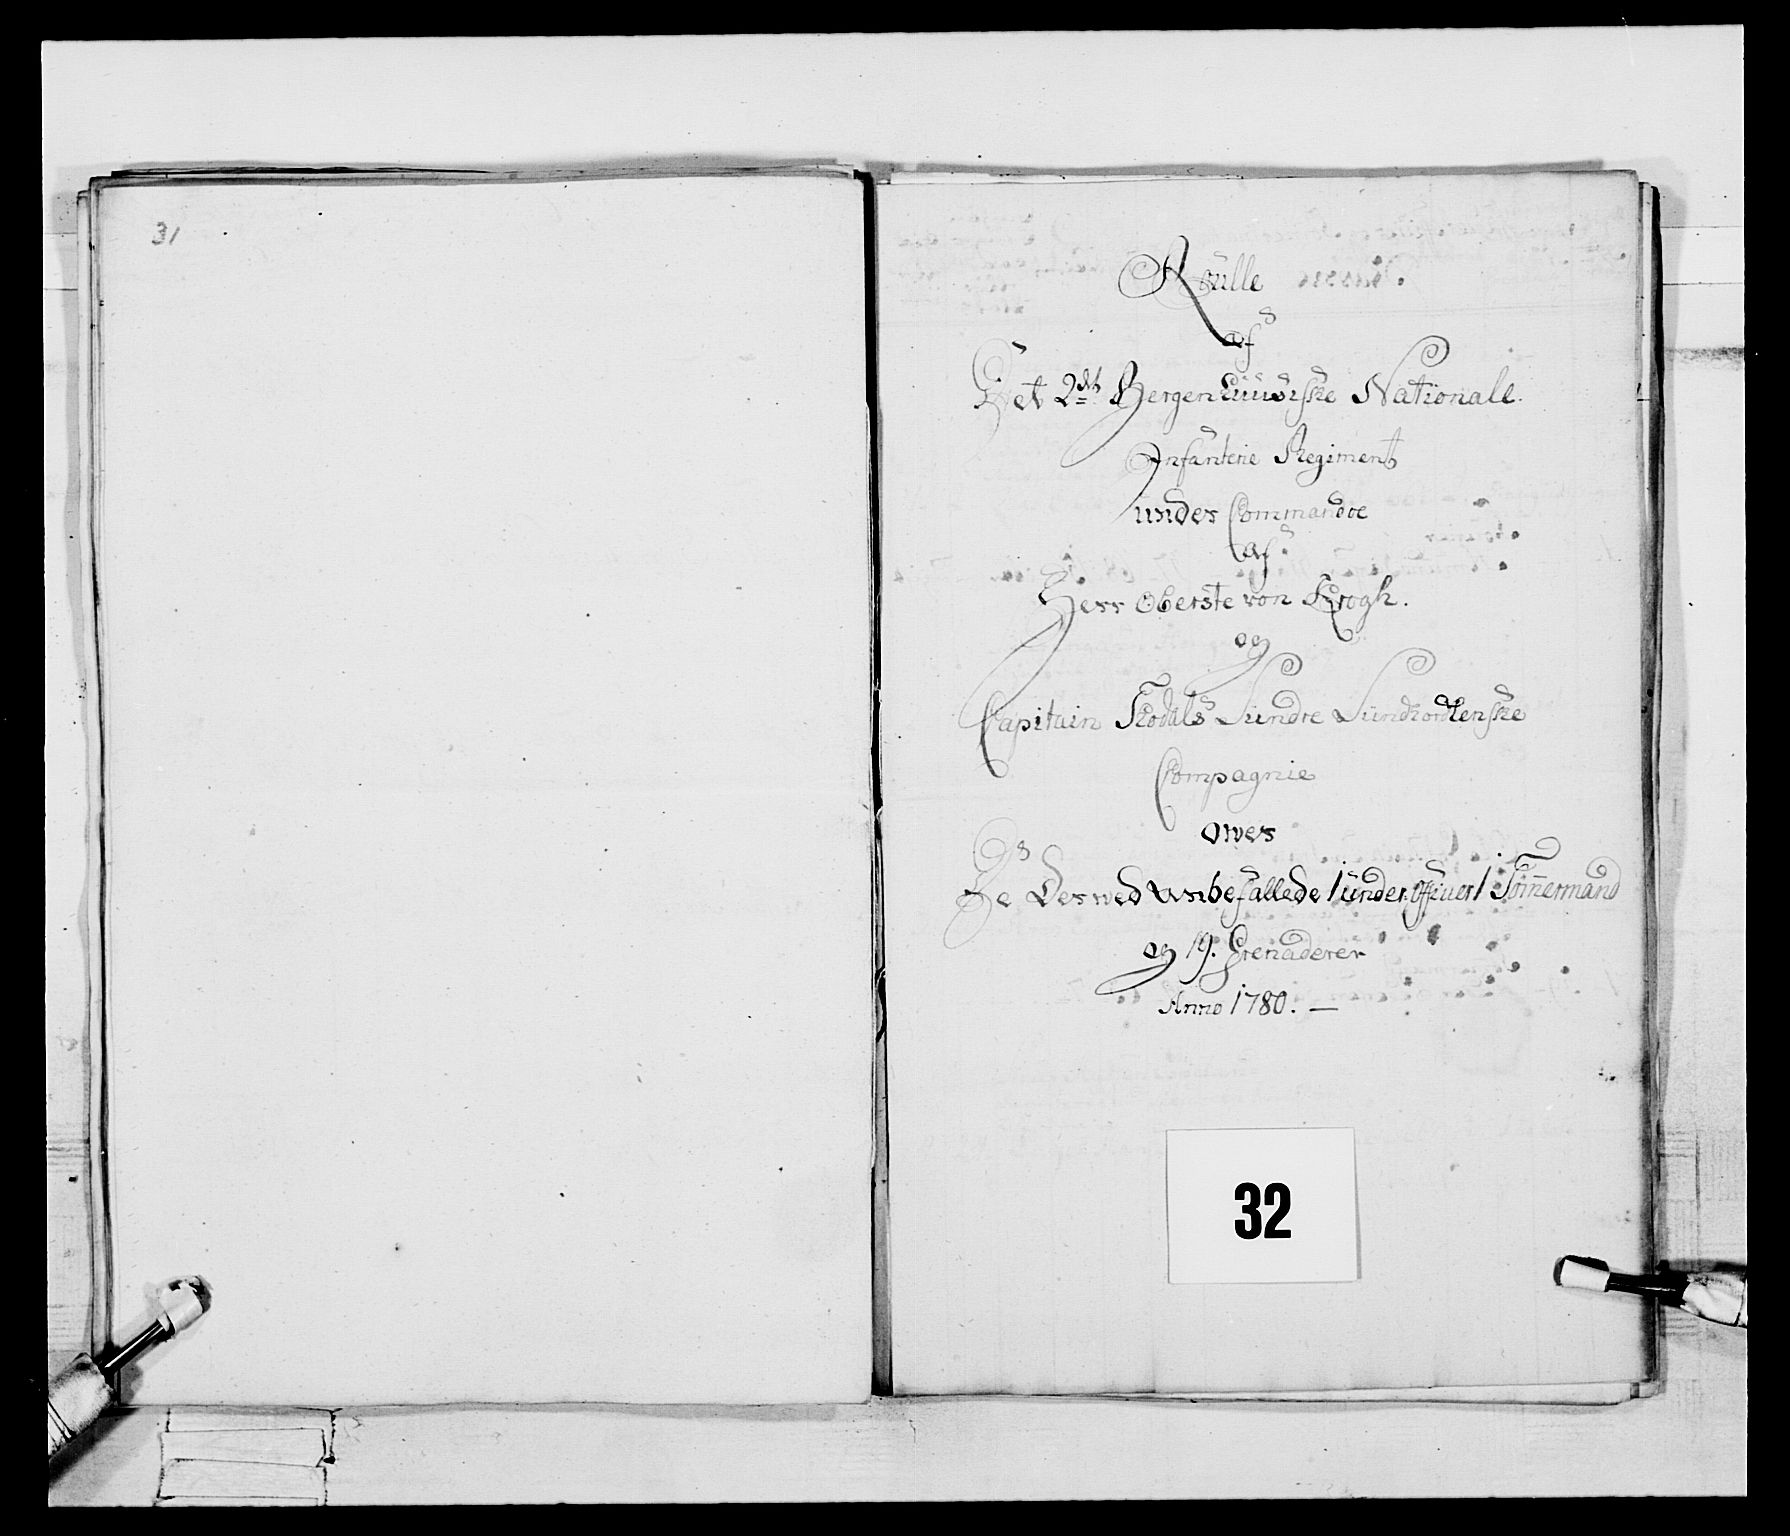 31
Roulle
af
Det 2det Bergenhuusiske Nationale
Infanterie Regiment
under Commandoe
af
Herr Oberste von Krogh.
og
Capitain Skodals Sundre Sundhordlenske
Compagnie
over
De Derved anbefallede 1 underofficeer 1 Tømmermand
og 19. Grenaderer
Anno 1780. —
32